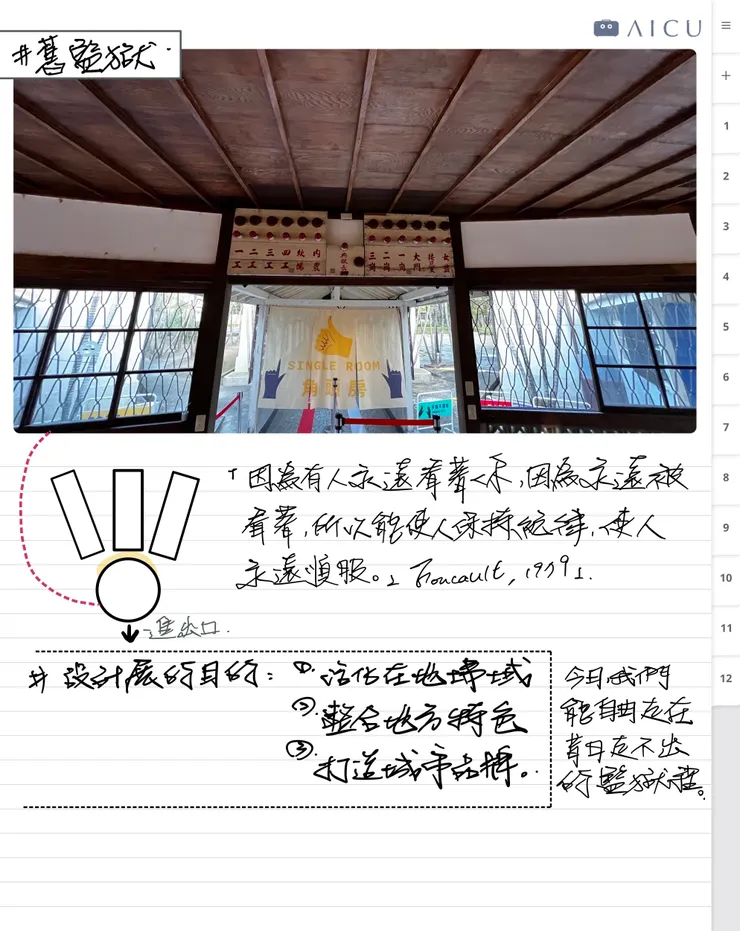 AICU
#舊監獄.
一工 二工 三工 四工
三崗 二崗 一崗 大門 女監
SINGLE ROOM
1
2
3
4
5
6
7
8
9
10
11
12
「因為有人永遠看著你,因為永遠被
看著,所以能使人保持紀律,使人
永遠順服。」Foucault, 1979」.
進出口.
# 設計展的目的:①.活化在地場域
②.整合地方特色
③.打造城市品牌。
今日我們
能自由走在
昔日走不出
的監獄裡。